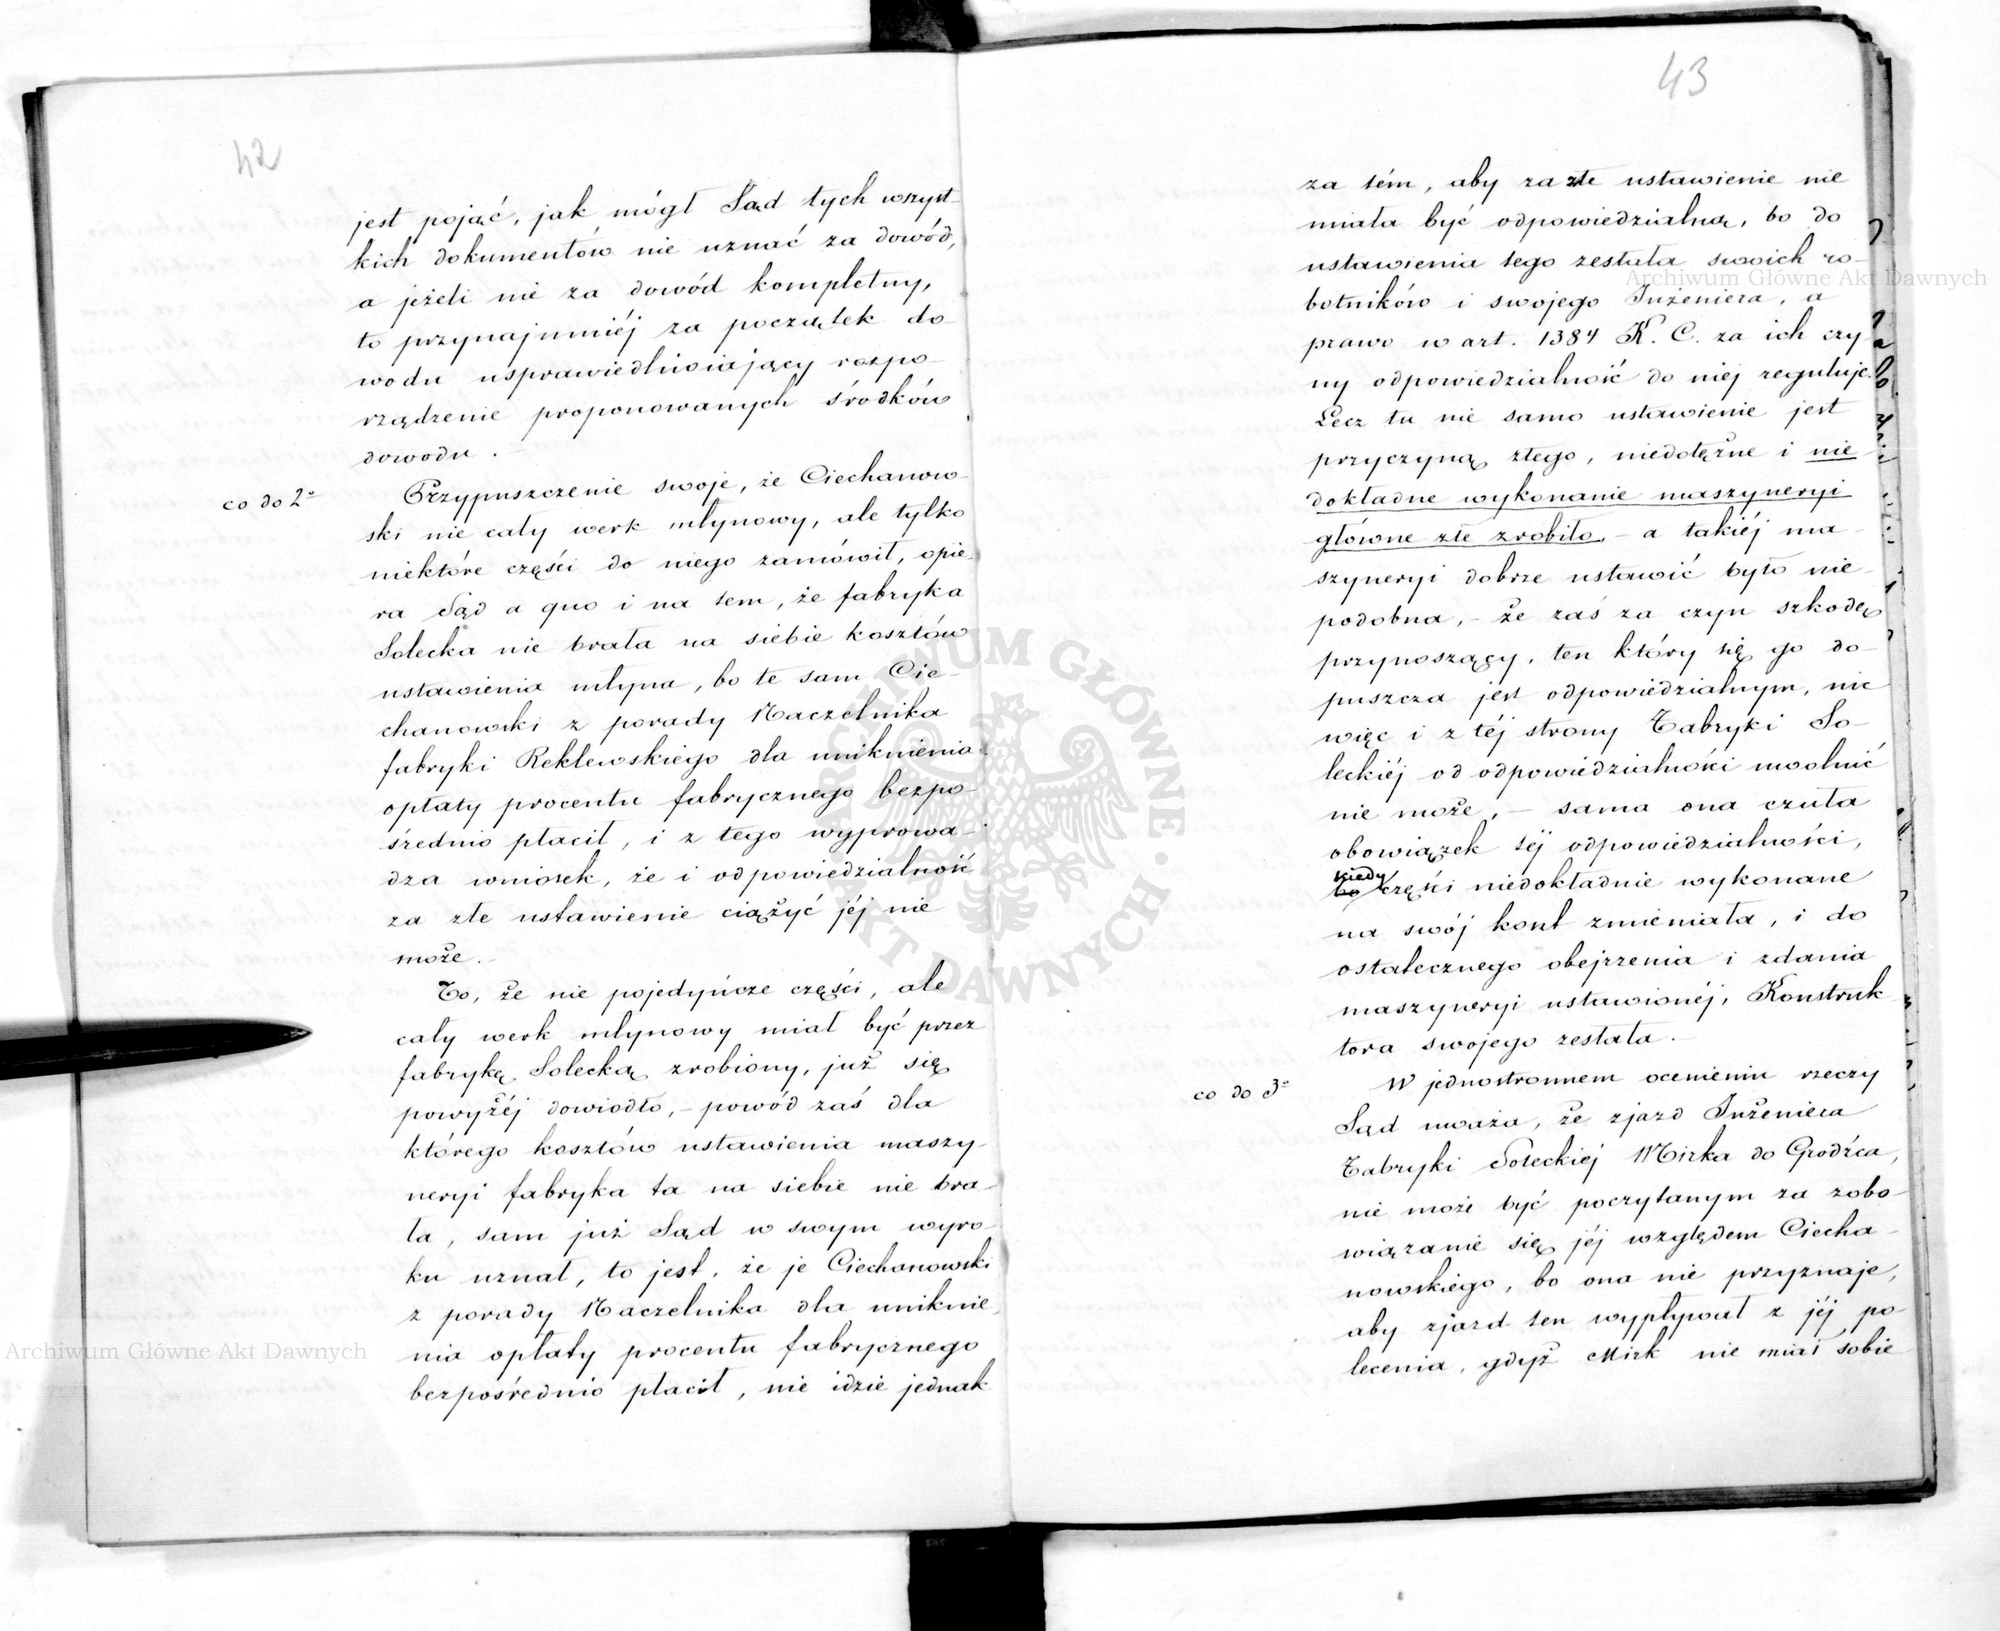 42
jest pojąć, jak mógł Sąd tych wszyst-
kich dokumentów nie uznać za dowód,
a jeżeli nie za dowód kompletny,
to przynajmniéj za początek do-
wodu usprawiedliwiający rozpo-
rządzenie proponowanych środków
dowodu. -
co do 2º
Przypuszczenie swoje, że Ciechanow-
ski nie cały werk młynowy, ale tylko
niektóre części do niego zamówił, opie-
ra Sąd a quo i na tem, że fabryka
Solecka nie brała na siebie kosztów
ustawienia młyna, bo te sam Cie-
chanowski z porady Naczelnika
fabryki Reklewskiego dla uniknienia
opłaty procentu fabrycznego bezpo-
średnio płacił, i z tego wyprowa-
dza wniosek, że i odpowiedzialność
za złe ustawienie ciążyć jéj nie
może. -
To, że nie pojedyńcze części, ale
cały werk młynowy miał być przez
fabrykę Solecką zrobiony, już się
powyżéj dowiodło, - powód zaś dla
którego kosztów ustawienia maszy-
neryi fabryka ta na siebie nie bra-
ła, sam już Sąd w swym wyro-
ku uznał, to jest, że je Ciechanowski
z porady Naczelnika dla uniknie-
nia opłaty procentu fabrycznego
bezpośrednio płacił, nie idzie jednak
43
za tém, aby za złe ustawienie nie
miała być odpowiedzialną, bo do
ustawienia tego zesłała swoich ro-
botników i swojego Inżeniera, a
prawo w art. 1384 K. C. za ich czy-
ny odpowiedzialność do niéj reguluje.
Lecz tu nie samo ustawienie jest
przyczyną złego, niedołężne i nie-
dokładne wykonanie maszyneryi
główne złe zrobiło, - a takiéj ma-
szyneryi dobrze ustawić było nie-
podobna, - że zaś za czyn szkodę
przynoszący, ten który się go do-
puszcza jest odpowiedzialnym, nic
więc i z téj strony Fabryki So-
leckiéj od odpowiedzialności uwolnić
nie może, - sama ona czuła
obowiązek téj odpowiedzialności,
kiedy
bo części niedokładnie wykonane
na swój koszt zmieniała, i do
ostatecznego obejrzenia i zdania
maszyneryi ustawionéj, Konstruk-
tora swojego zesłała. -
co do 3º
W jednostronnem ocenieniu rzeczy
Sąd uważa, że zjazd Inżeniera
Fabryki Soleckiéj Mirka do Grodźca,
nie może być poczytanym za zobo-
wiązanie się jéj względem Ciecha-
nowskiego, bo ona nie przyznaje,
aby zjazd ten wypływał z jéj po-
lecenia, gdyż Mirk nie miał sobie
Archiwum Główne Akt Dawnych
Archiwum Główne Akt Dawnych
ARCHIWUM GŁÓWNE · AKT DAWNYCH ·